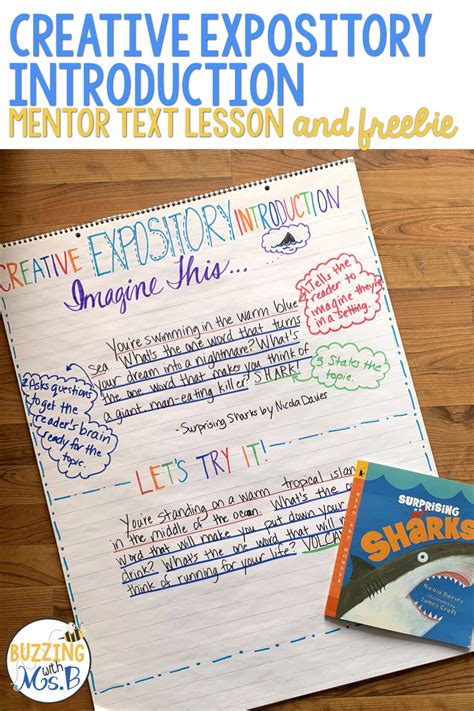 CREATIVE EXPOSITORY
INTRODUCTION
MENTOR TEXT LESSON and freebie
CREATIVE EXPOSITORY INTRODUCTION
Imagine This...
You're swimming in the warm blue
sea. What's the one word that turns
your dream into a nightmare? What's
the one word that makes you think of
a giant man-eating killer? SHARK!
-Surprising Sharks by Nicola Davies
1. Tells the
reader to
imagine they're
in a setting.
2. Asks questions
to get the
reader's brain
ready for the
topic.
3. States the
topic.
LET'S TRY IT!
You're standing on a warm tropical islan
in the middle of the ocean. What's the one
word that will make you put down your
drink? What's the one word that will m
think of running for your life? VOLCA
READ AND WONDER
SURPRISING
SHARKS
Nicola Davies
illustrated by
James Croft
BUZZING
with
Ms. B